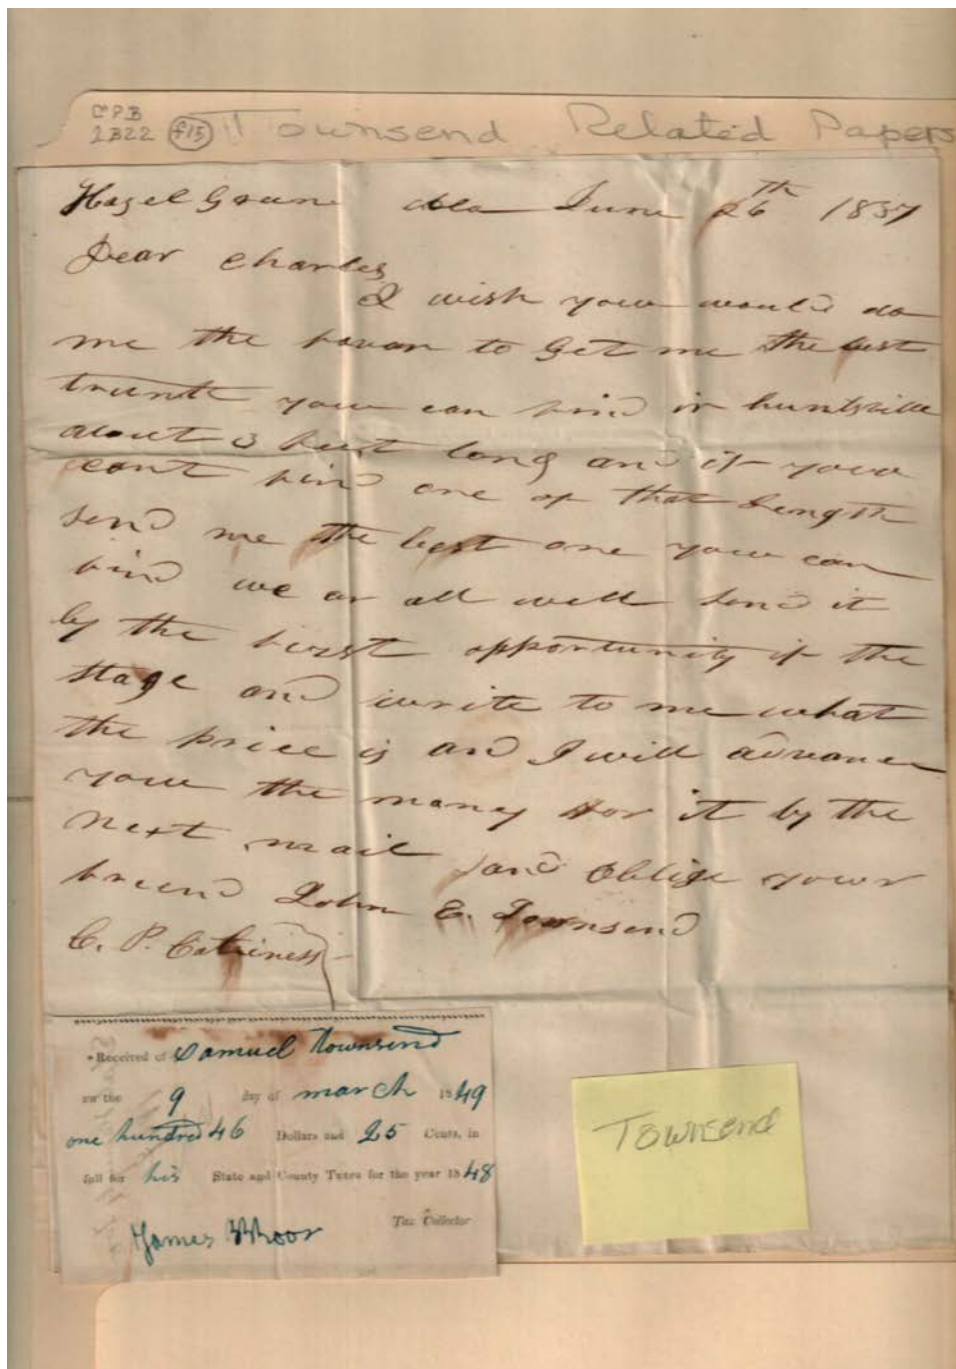 CPB
2B22 f15 Townsend Related Papers
Hazel Green Ala June 26th 1837
Dear Charles
I wish youu would do
me the favor to Get me the best
trunk youu can find in huntsville
about 3 feet long and if youu
cant find one of that Length
send me the best one youu can
find we ar all well send it
by the first opportunity if the
stage and write to me what
the price is and I will advance
youu the money for it by the
next mail and Oblige your
freind John E. Townsend
C. P.
Received of Samuel Townsend
on the 9 day of march 1849
one hundred 46 Dollars and 25 Cents, in
full for his State and County Taxes for the year 1848
James Tax Collector
Townsend